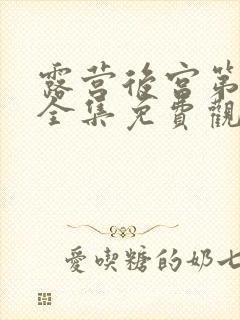 露营後宫第
全集免費觀
愛喫糖的奶七